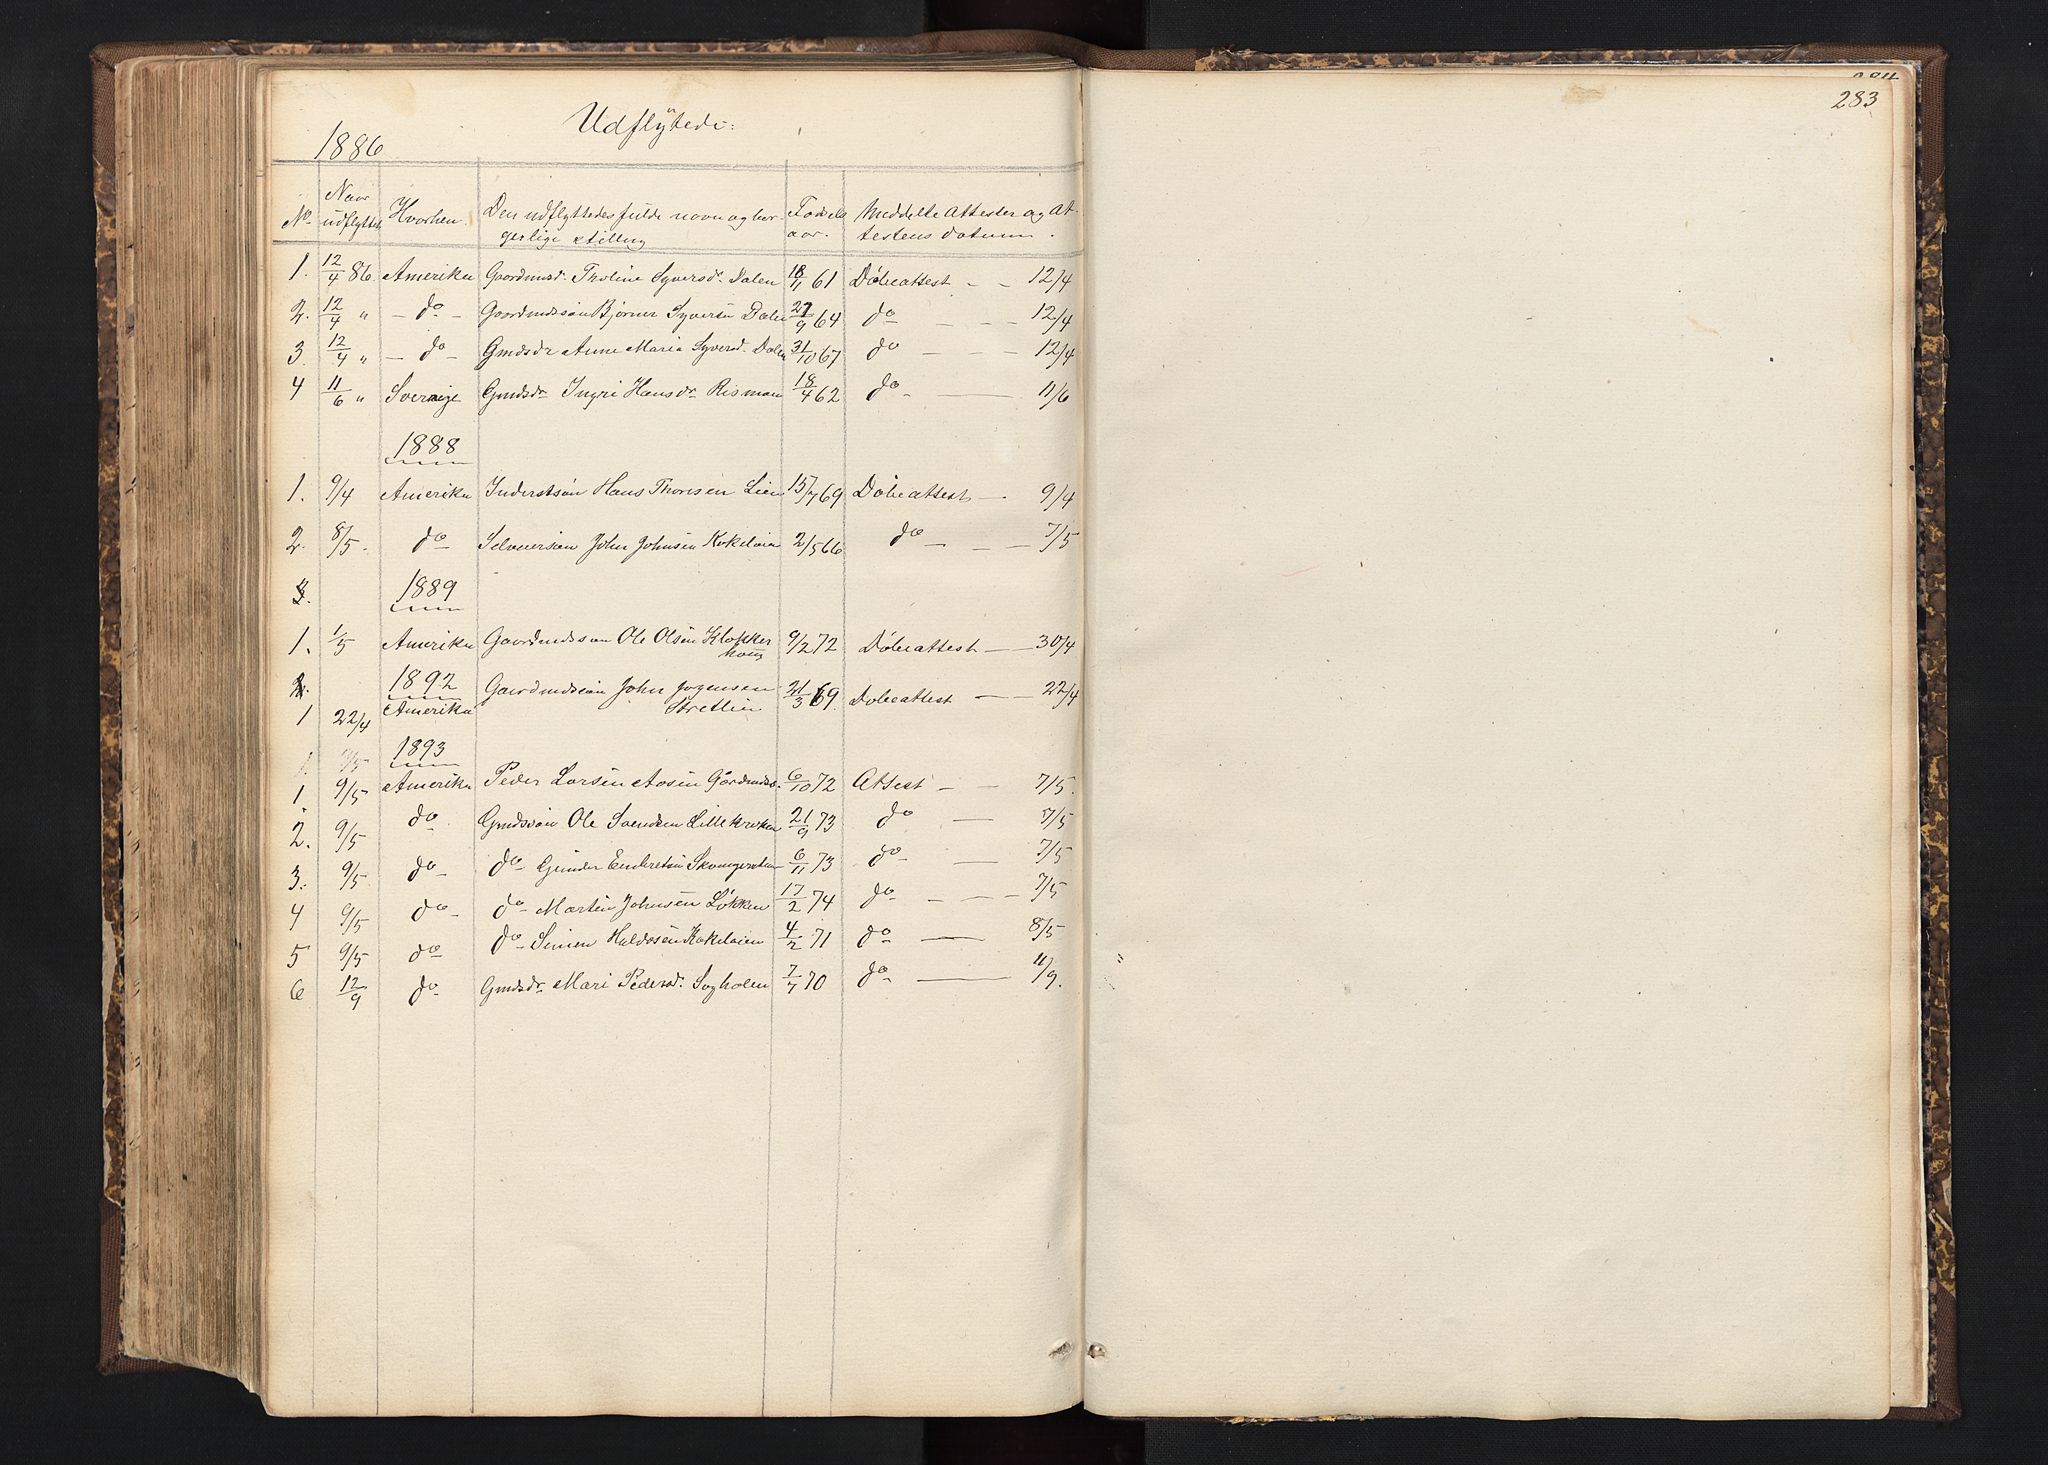 284
283
Udflÿtede:
1886
No. Naar udflyttet Hvorhen. Den udflyttedes fulde navn og bor- Fødsels Meddelte Attester og At-
gerlige stilling aar. testens datum.
1. 12/4 86 Amerika Gaardmsd. Troline Syversd. Dalen 18/11 61 Døbeattest - - 12/4
2. 12/4 " - do - Gaardmdssøn Bjørner Syversen Dalen 27/9 64 do - - - 12/4
3 12/4 " - do - Gmdsdr Anne Maria Syversd. Dalen 31/10 67 do - - - 12/4
4 11/6 " Sverrige Gmdsdr Ingri Hansdr Risman 18/4 62 do - 11/6
1888
1. 9/4 Amerika Inderstsøn Hans Thorsen Lien 15/7 69 Døbeattest - 9/4
2. 8/5. do Selveiersøn John Johnsen Kokeloien 2/5 66 do - - - 7/5
3. 1889
1. 1/5 Amerika Gaardmdssøn Ole Olsen Klokker 9/2 72 Døbeattest - - 30/4
houg
2. 1892 Gaardmdssøn John Jørgensen 21/3 69. Døbeattest - - 22/4
1 22/4 Amerika Stretlien
1. 9/5 1893
1 9/5 Amerika Peder Larsen Aasen Gårdmdss. 6/10 72 Attest - - 7/5.
2. 9/5 do Gmdssøn Ole Svendsen Lille Kroken 21/9 73 do - 7/5
3. 9/5 do do Gunder Embretsen 6/11 73 do - 7/5
4 9/5 do - do Martin Johnsen Løkken 17/2 74 do - - - 7/5
5 9/5 do do Simen Haldosen Kokeloien 4/2 71 do - 8/5
6 12/9 do Gmdsdr Mari Pedersd. Sogholen 7/7 70 do - 11/9.